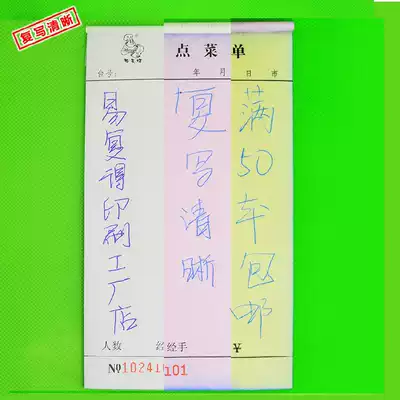 复写清晰
点菜单
台号: 年 月 日 市
易复得印刷工厂店
复写清晰
满50车包邮
人数 经手 ¥
№102411101